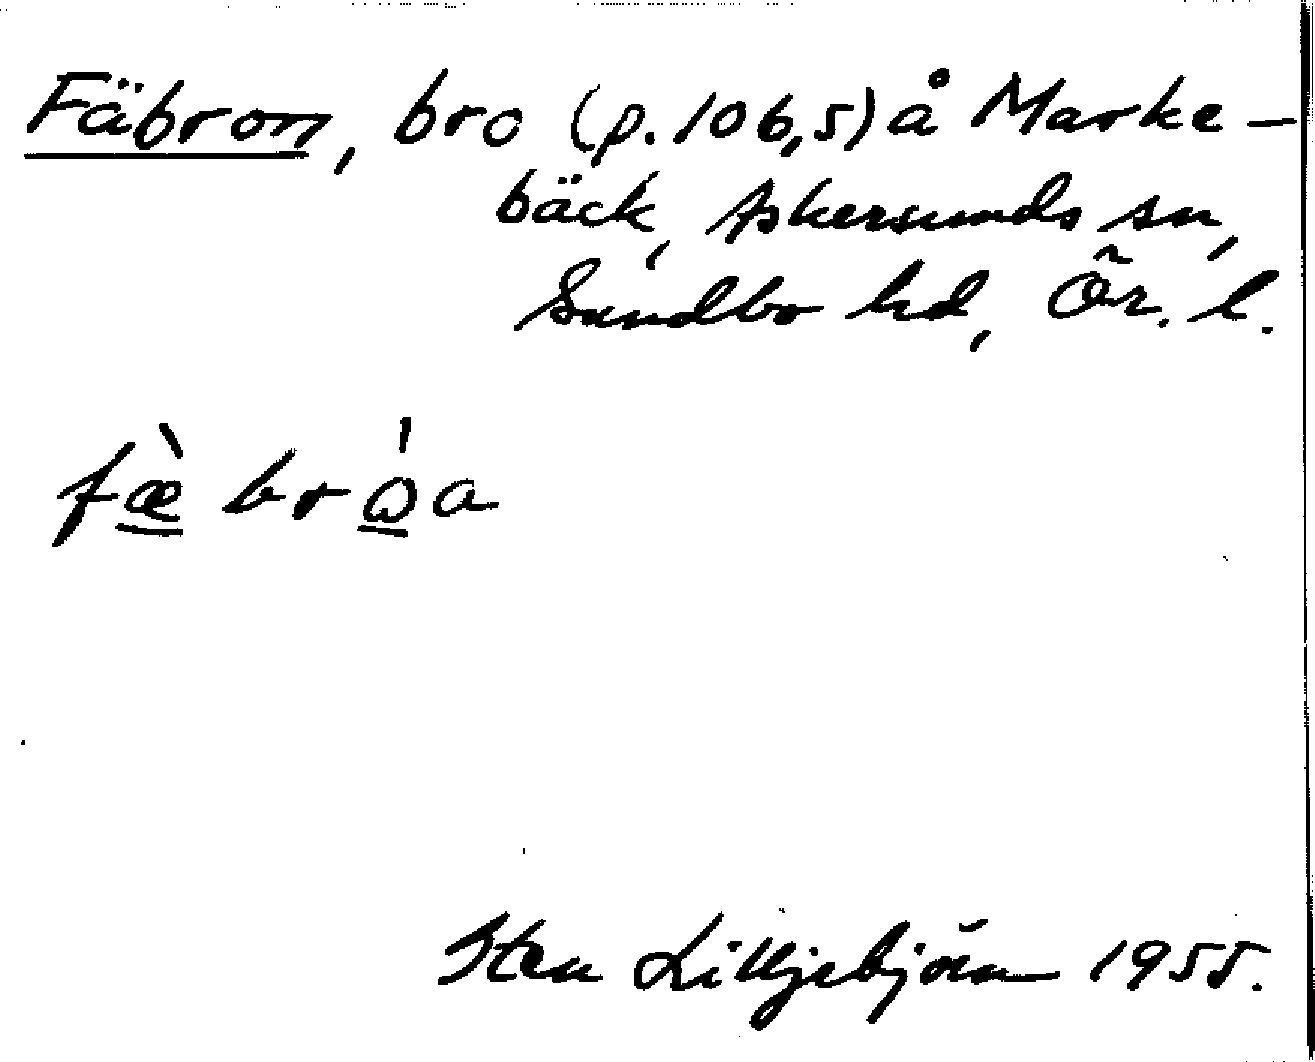 Fäbron, bro (p. 106,5) å Marke-
bäck, Askersunds sn,
Sundbo hd, Ör. l.
fæ̀ brω̍a
Sten Lilljebjörn 1955.